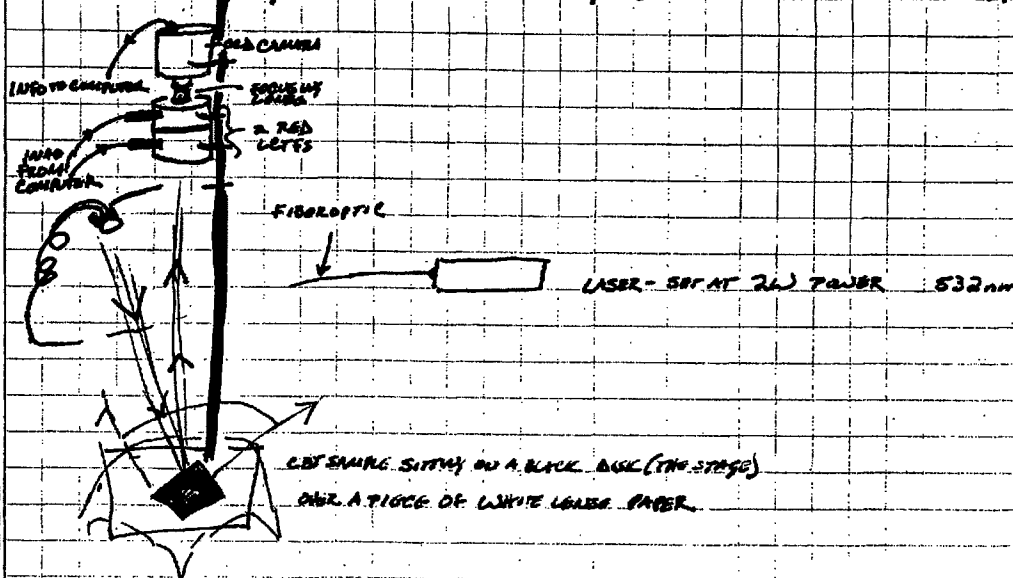 CCD CAMERA
INFO TO COMPUTER
FOCUSING
LENSE
2 RED
LCTFS
INFO
FROM
COMPUTER
FIBEROPTIC
LASER - SET AT 2W POWER 532nm
SAMPLE SITTING ON A BLACK DISK (THE STAGE)
OVER A PIECE OF WHITE LENSE PAPER.